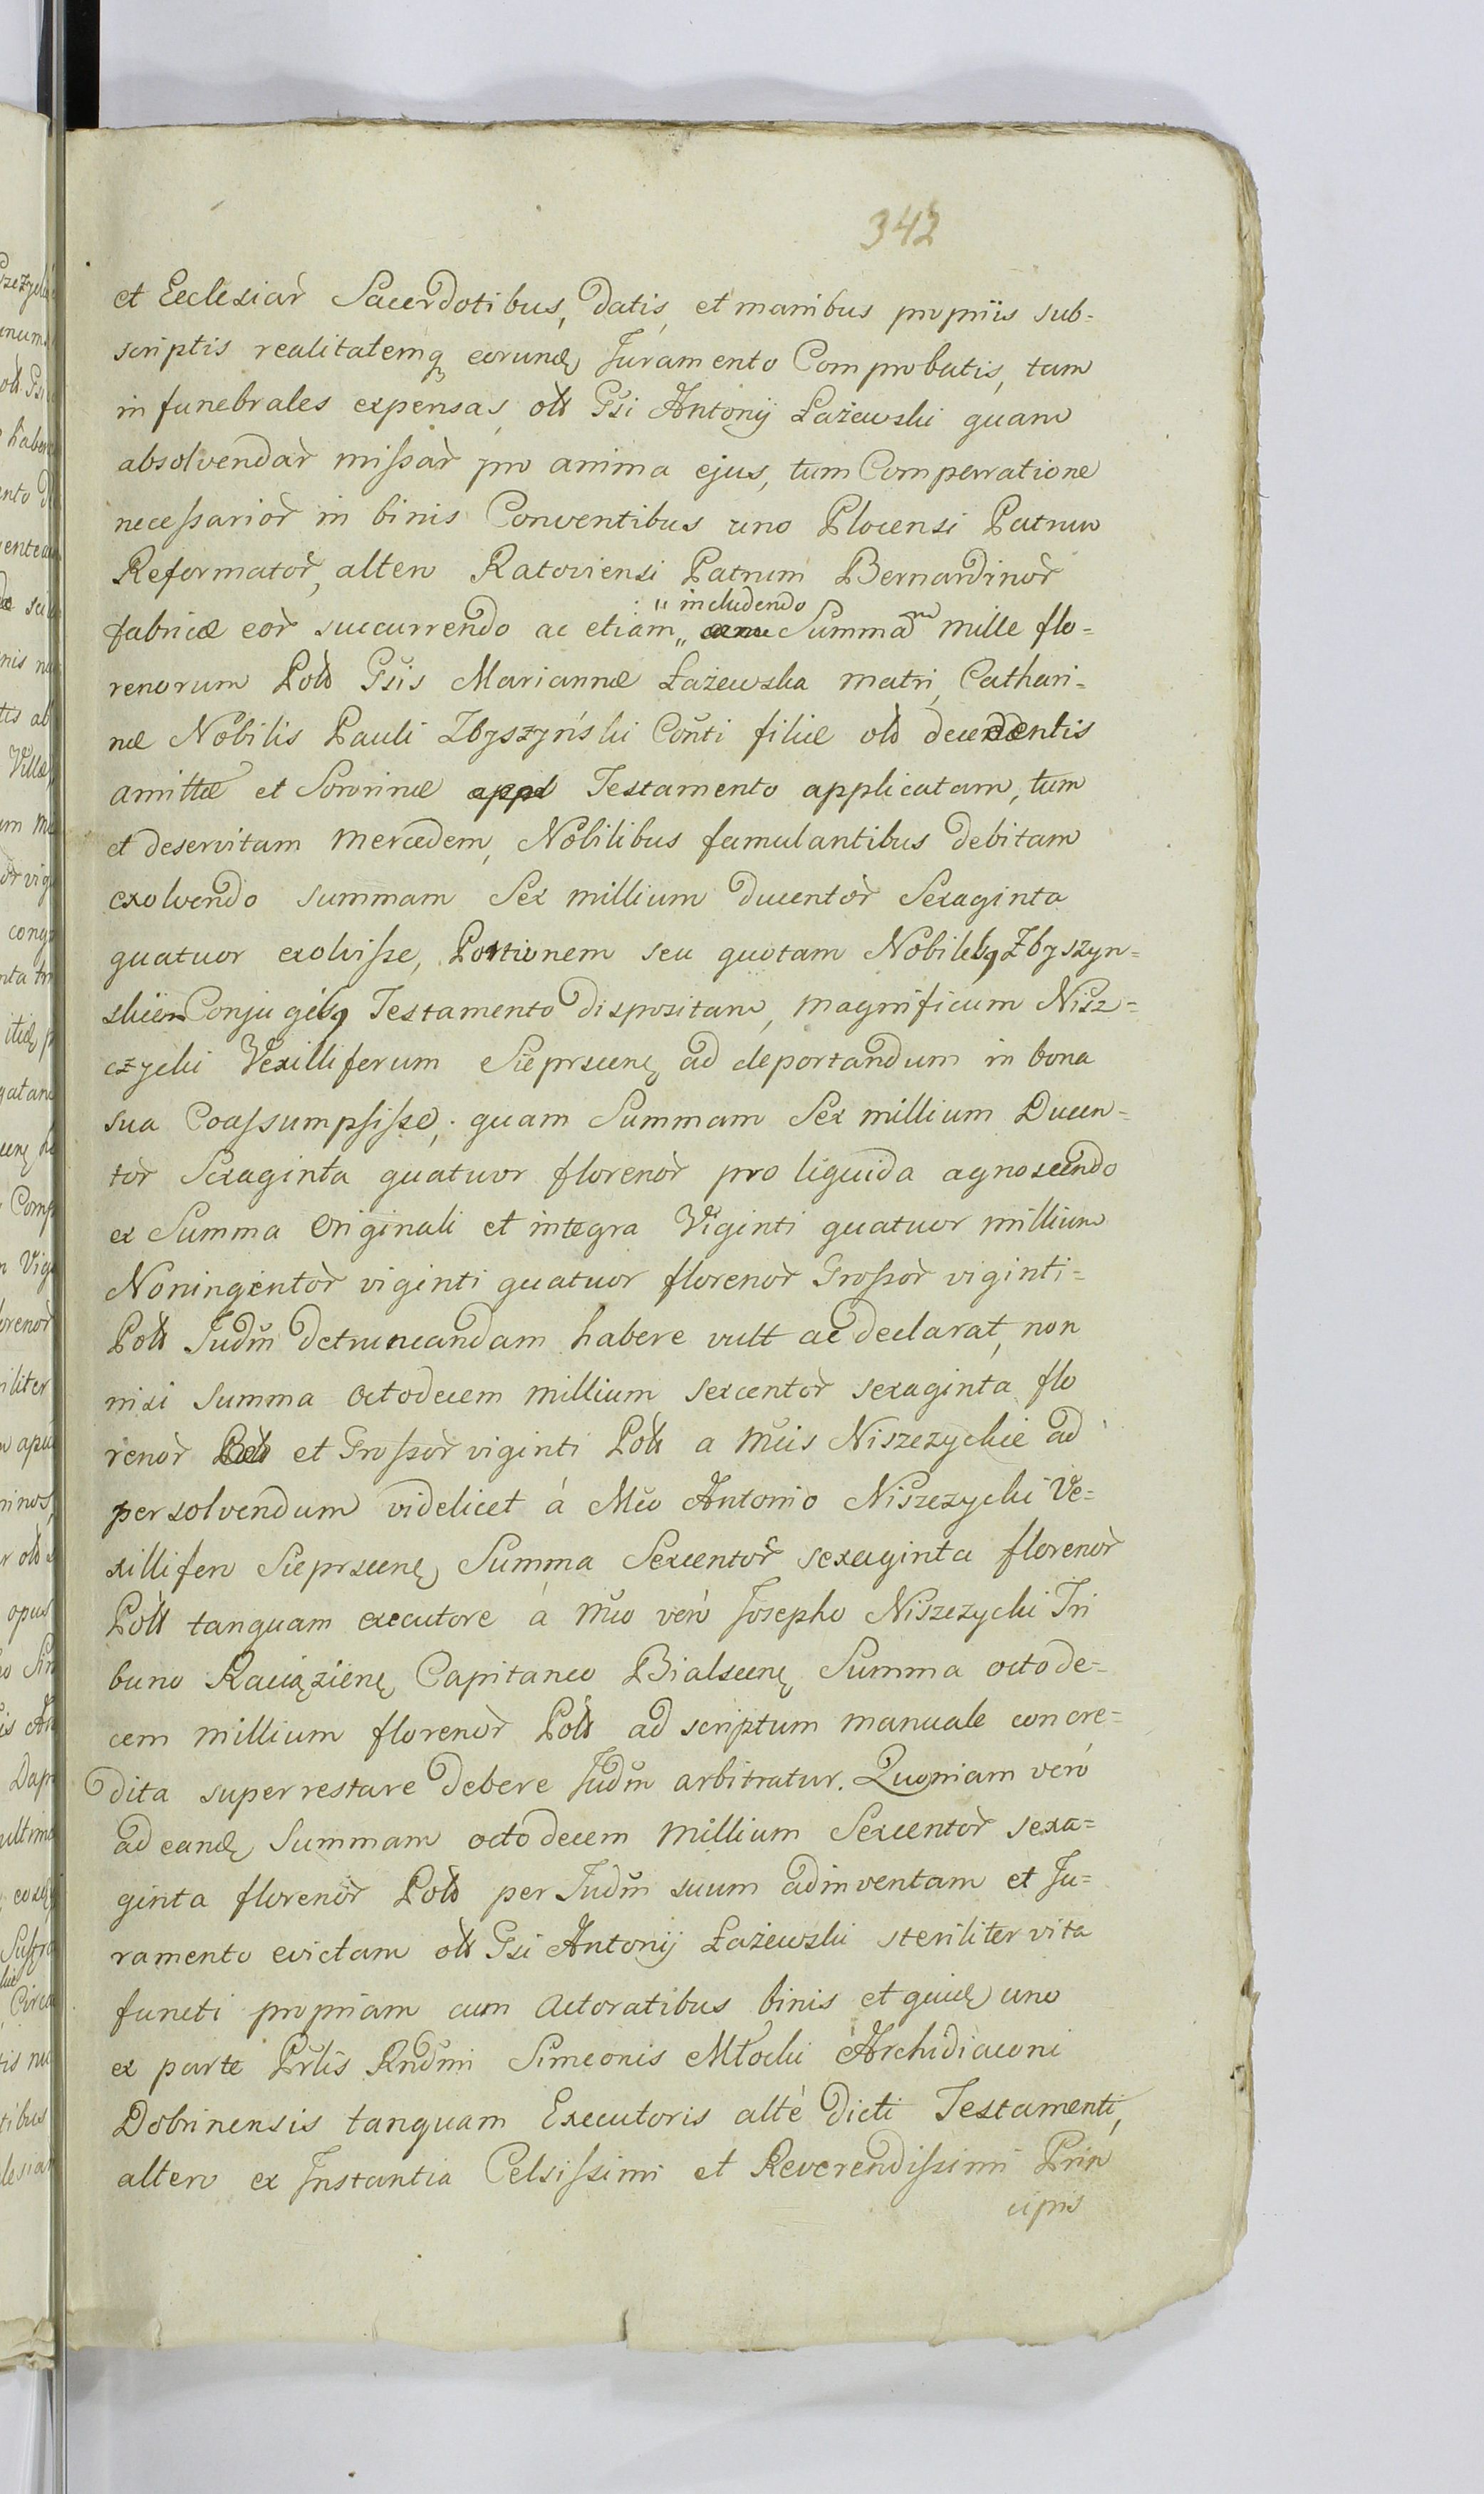 342
et Ecclesiar̀ Sacerdotibus, datis, et manibus propriis sub-
scriptis realitatemq eorundę Juramento Comprobatis, tam
in funebrales expensas, olt Gsi Antonij Łażewski quam
absolvendar̀ missar̀ pro anima ejus, tum Comperratione
necessarior̀ in binis Conventibus uno Plocensi Patrum
Reformator̀, altero Ratoviensi Patrum Bernardinor̀
" includendo
fabricæ eor̀ succurrendo ac etiam „ Summam mille flo=
renorum Poło Gsis Mariannæ Łażewska matri, Cathari=
næ Nobilis Pauli Zbyszyński Cońti filiæ olt decedentis
amittæ et Sororinæ Testamento applicatam, tum
et deservitam mercedem, Nobilibus famulantibus debitam
exolvendo summam Sex millium ducentor̀ Sexaginta
quatuor exolvisse, Portionem seu quotam Nobilibq Zbyszyn=
skiem Conjugibq Testamento dispositam, magnificum Nisz=
czycki Vexilliferum Sieprscenę ad deportandum in bona
sua Coassumpsisse; quam Summam Sex millium Ducen=
tor̀ Sexaginta quatuor florenor̀ pro liquida agnoscendo
ex Summa Originali et integra Viginti quatuor millium
Noningentor̀ viginti quatuor florenor̀ Grossor̀ viginti=
Polł Judm̃ detruncandam habere vult ac declarat, non
nisi summa octodecem millium sexcentor̀ sexaginta flo
renor̀ et Grossor̀ viginti Polł a Mcis Niszczyckie ad
persolvendum videlicet á Mco Antonio Niszczycki Ve=
xillifero Sieprscenę Summa Sexcentor̀ sexaginta florenor̀
Polł tanquam executore á Mco verò Josepho Niszczycki Tri
buno Raciązienę Capitaneo Bialscenę Summa octode=
cem millium florenor̀ Polł ad scriptum manuale concre=
dita superrestare debere Judm̃ arbitratur. Quoniam verò
ad eandę Summam octodecem millium Sexcentor̀ sexa=
ginta florenor̀ Poło per Judm̃ suum adinventam et Ju=
ramento evictam olt Gsi Antonij Łażewski steriliter vita
functi propriam cum Actoratibus binis et quidę uno
ex parte Prlis Rndmi Simeonis Młocki Archidiaconi
Dobrinensis tanquam Executoris altè dicti Testamenti,
altero ex Instantia Celsissimi et Reverendissimi Prin
cipis